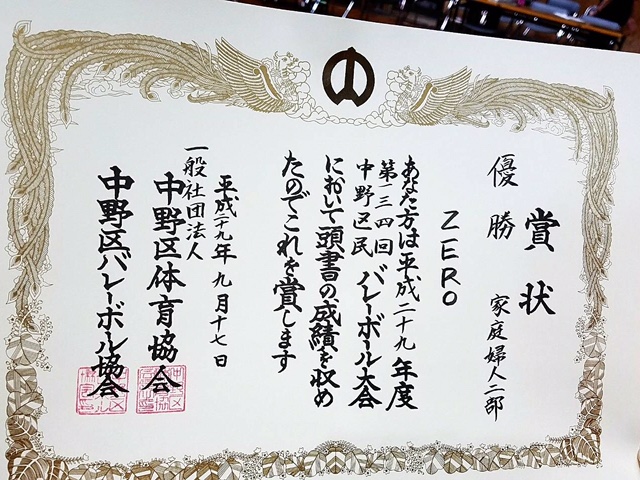 賞状
優勝 家庭婦人二部
ZERO
あなた方は平成二十九年度
第一三四回
中野区民バレーボール大会
において頭書の成績を収め
たのでこれを賞します
平成二十九年九月十七日
一般社団法人
中野区体育協会
中野区バレーボール協会